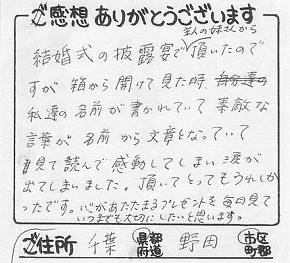 ご感想ありがとうございます
主人の妹さんから
結婚式の披露宴で頂いたので
すが箱から開けて見た時、自分達の
私達の名前が書かれていて素敵な
言葉が名前から文章となっていて
見て読んで感動してしまい涙が
出てしまいました。頂いてとってもうれしか
ったです。心があたたまるプレゼントを毎日見て
いつまでも大切にしたいと思います。
ご住所 千葉 都道府県 野田 市区町郡